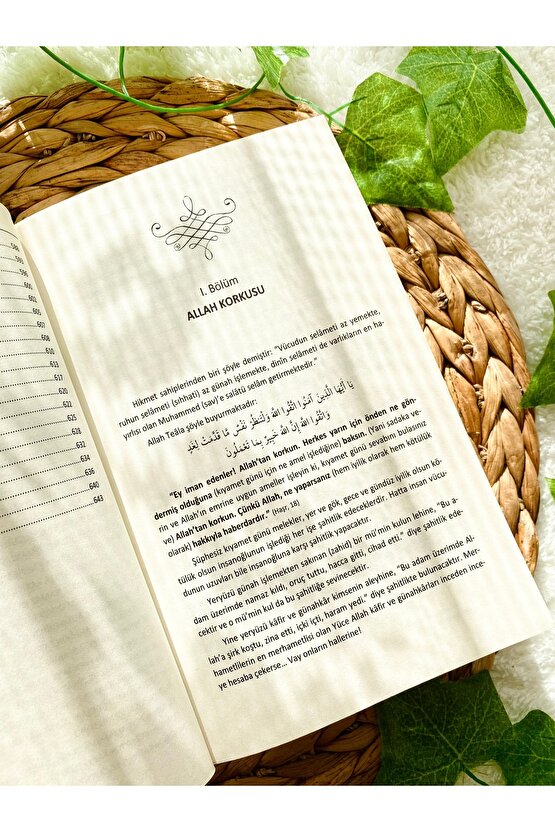 588
593
595
596
600
602
605
608
611
613
617
620
621
632
634
640
643
I. Bölüm
ALLAH KORKUSU
Hikmet sahiplerinden biri şöyle demiştir: "Vücudun selâmeti az yemekte,
ruhun selâmeti (sıhhati) az günah işlemekte, dinin selâmeti de varlıkların en ha-
yırlısı olan Muhammed (sav)'e salâtü selâm getirmektedir."
Allah Teâla şöyle buyurmaktadır:
يَا أَيُّهَا الَّذِينَ آمَنُوا اتَّقُوا اللّٰهَ وَلْتَنظُرْ نَفْسٌ مَّا قَدَّمَتْ لِغَدٍ
وَاتَّقُوا اللّٰهَ إِنَّ اللّٰهَ خَبِيرٌ بِمَا تَعْمَلُونَ
"Ey iman edenler! Allah'tan korkun. Herkes yarın için önden ne gön-
dermiş olduğuna (kıyamet günü için ne amel işlediğine) baksın. (Yani sadaka ve-
rin ve Allah'ın emrine uygun ameller işleyin ki, kıyamet günü sevabını bulasınız
ve) Allah'tan korkun. Çünkü Allah, ne yaparsanız (hem iyilik olarak hem kötülük
olarak) hakkıyla haberdardır." (Haşr, 18)
Şüphesiz kıyamet günü melekler, yer ve gök, gece ve gündüz iyilik olsun kö-
tülük olsun insanoğlunun işlediği her işe şahitlik edeceklerdir. Hatta insan vücu-
dunun uzuvları bile insanoğluna karşı şahitlik yapacaktır.
Yeryüzü günah işlemekten sakınan (zahid) bir mü'min kulun lehine, "Bu a-
dam üzerimde namaz kıldı, oruç tuttu, hacca gitti, cihad etti." diye şahitlik ede-
cektir ve o mü'min kul da bu şahitliğe sevinecektir.
Yine yeryüzü kâfir ve günahkâr kimsenin aleyhine, "Bu adam üzerimde Al-
lah'a şirk koştu, zina etti, içki içti, haram yedi." diye şahitlikte bulunacaktır. Mer-
hametlilerin en merhametlisi olan Yüce Allah kâfir ve günahkârları inceden ince-
ye hesaba çekerse... Vay onların hallerine!